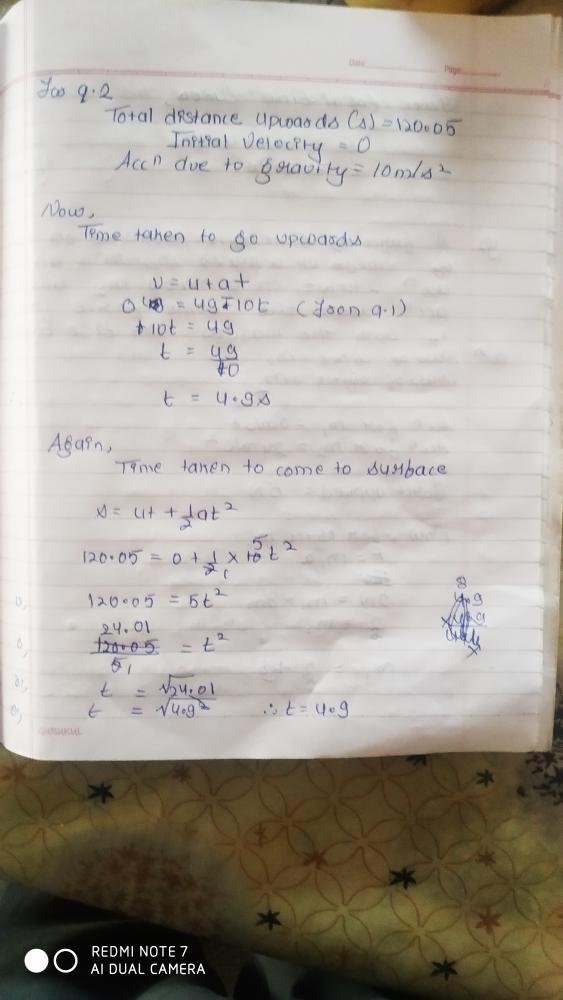 Date Page
For q.2
Total distance upwards (s) = 120.05
Initial velocity = 0
Accn due to gravity = 10m/s²
Now,
Time taken to go upwards
v = u+at
0 = 49-10t (from q.1)
10t = 49
t = 49/10
t = 4.9s
Again,
Time taken to come to surface
s = ut + 1/2 at²
120.05 = 0 + 1/2 × 10 5 t²
120.05 = 5t²
24.01
120.05/5 1 = t²
t = √24.01
t = √4.9² ∴ t = 4.9
GURUKUL
REDMI NOTE 7
AI DUAL CAMERA